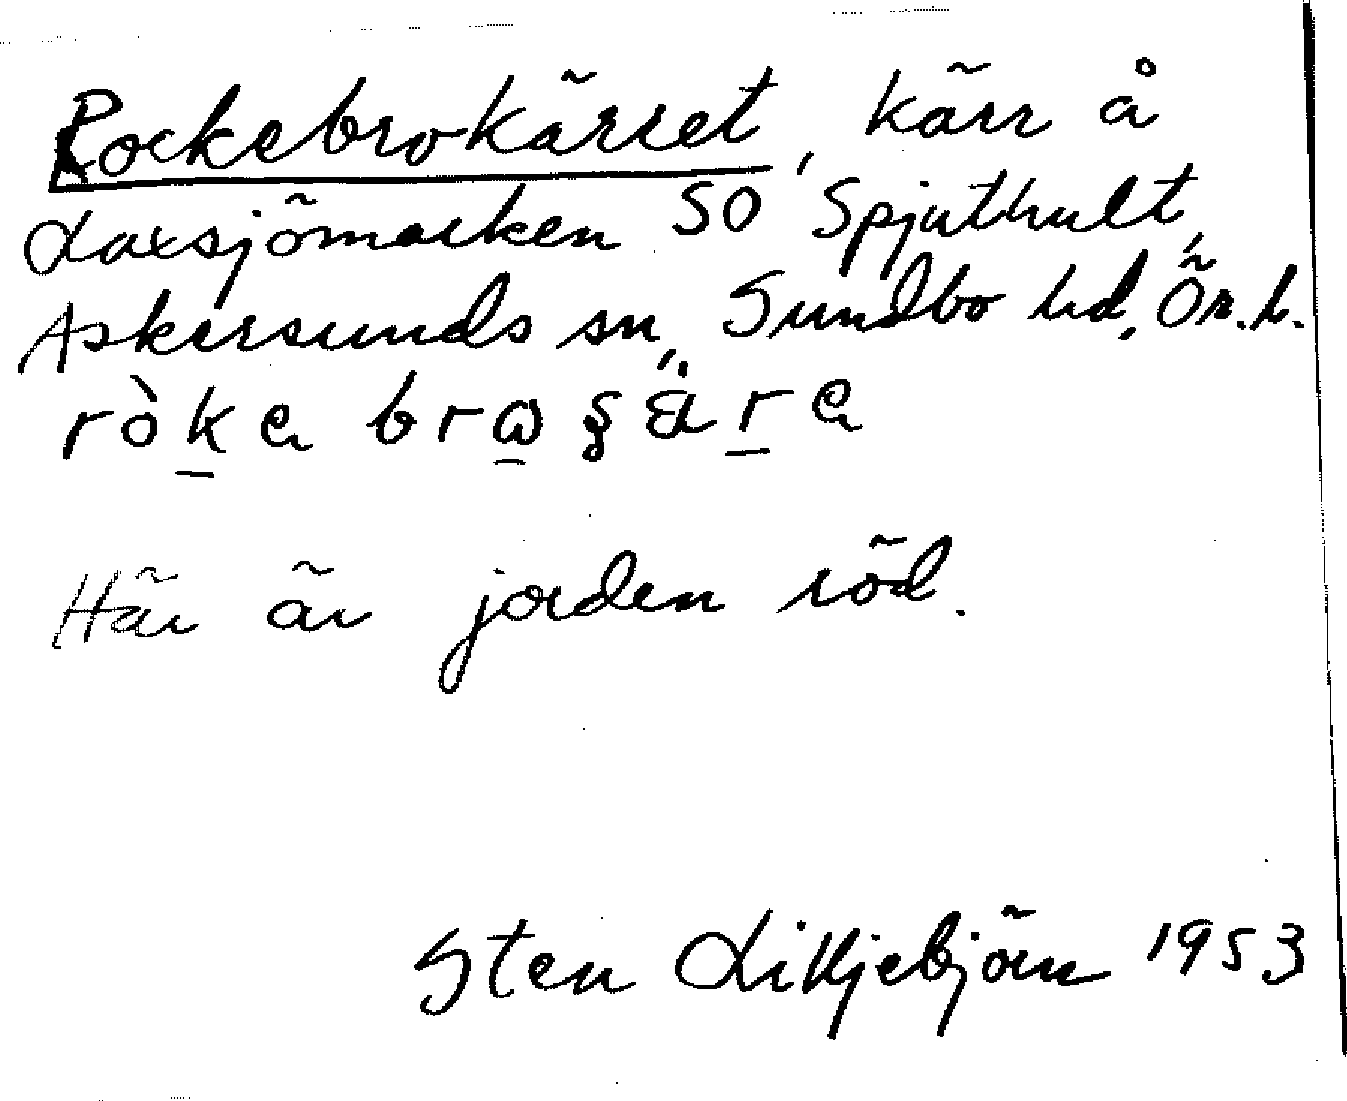 Rockebrokärret, kärr å
Laxsjömarken SO Spjuthult,
Askersunds sn, Sundbo hd, Ör.l.
ròkɐ brωʂärɐ
Här är jorden röd.
Sten Liljebjörn 1953